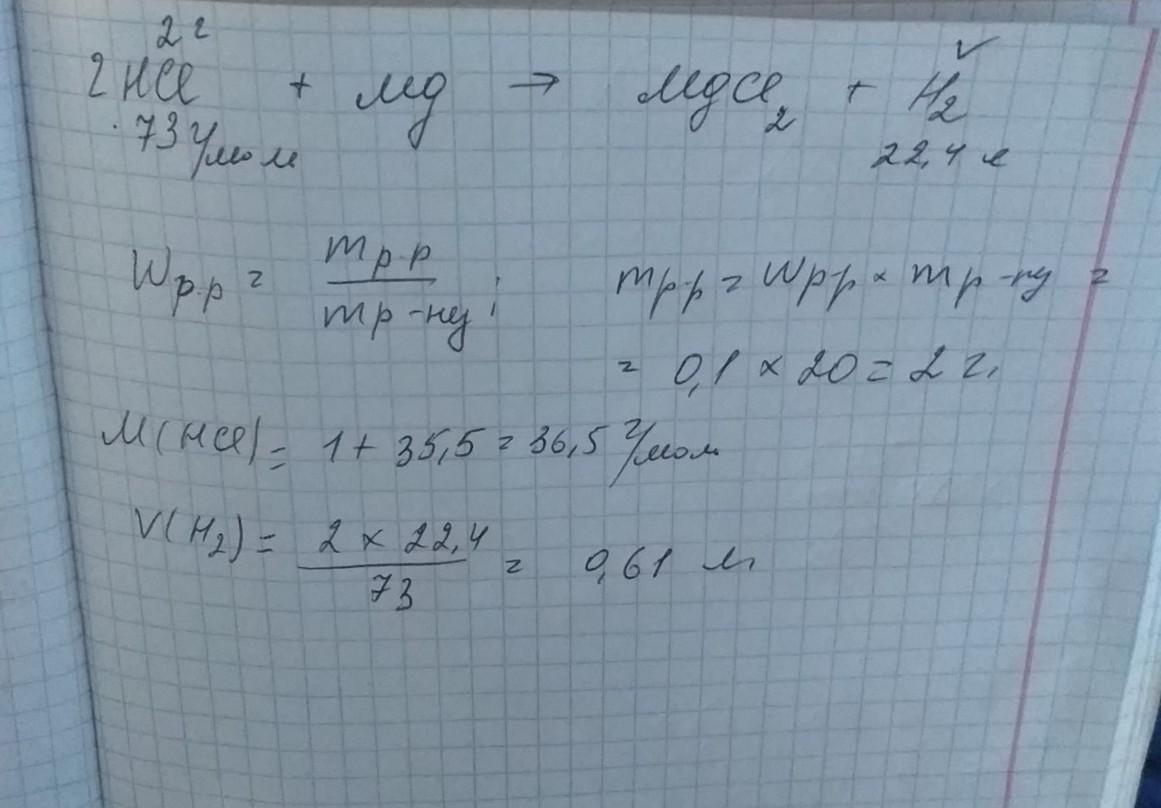 2 г V
2HCl + Mg → MgCl2 + H2
73 г/моль 22,4 л
Wр.р = mр.р / mр-ну; mр.р = Wр.р × mр-ну =
= 0,1 × 20 = 2 г.
M(HCl) = 1 + 35,5 = 36,5 г/моль
V(H2) = 2 × 22,4 / 73 = 0,61 л